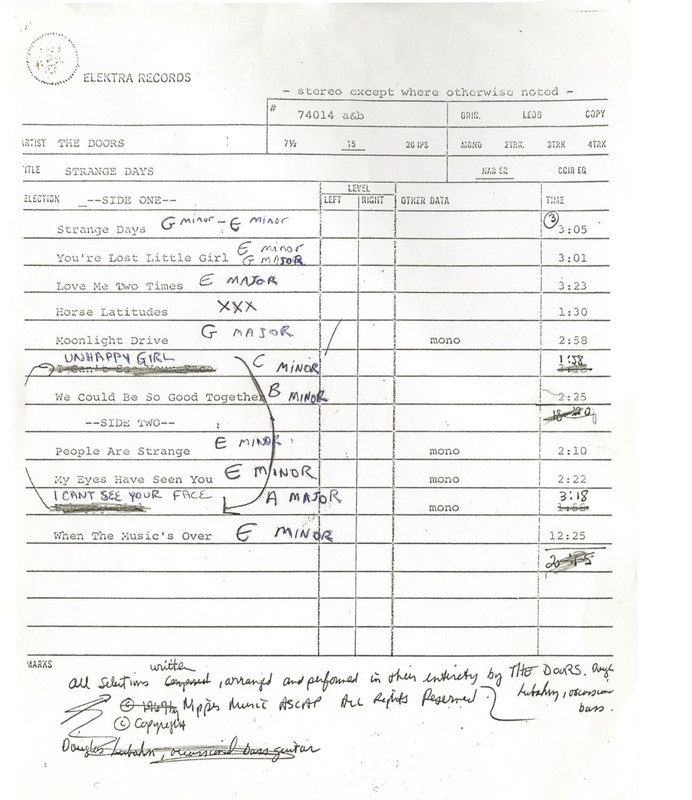 ELEKTRA RECORDS
- stereo except where otherwise noted -
# 74014 a&b ORIG. COPY
ARTIST THE DOORS 7½ 15 30 IPS MONO 2TRK. 3TRK 4TRK
TITLE STRANGE DAYS NAB EQ CCIR EQ
ELECTION --SIDE ONE-- LEVEL LEFT RIGHT OTHER DATA TIME
Strange Days G minor - E minor 3 3:05
E minor
You're Lost Little Girl G MAJOR 3:01
Love Me Two Times E MAJOR 3:23
Horse Latitudes XXX 1:30
Moonlight Drive G MAJOR mono 2:58
UNHAPPY GIRL C MINOR 1:58
I Can't See Your Face
We Could Be So Good Together B MINOR 2:25
--SIDE TWO--
People Are Strange E MINOR mono 2:10
My Eyes Have Seen You E MINOR mono 2:22
I CANT SEE YOUR FACE A MAJOR 3:18
mono 1:58
When The Music's Over E MINOR 12:25
MARKS
written
All Selections Composed, arranged and performed in their entirety by THE DOORS. Doug
© 1967 by Nipper Music ASCAP All Rights Reserved Lubahn, occasional
© Copyright bass.
Douglas Lubahn, occasional bass guitar